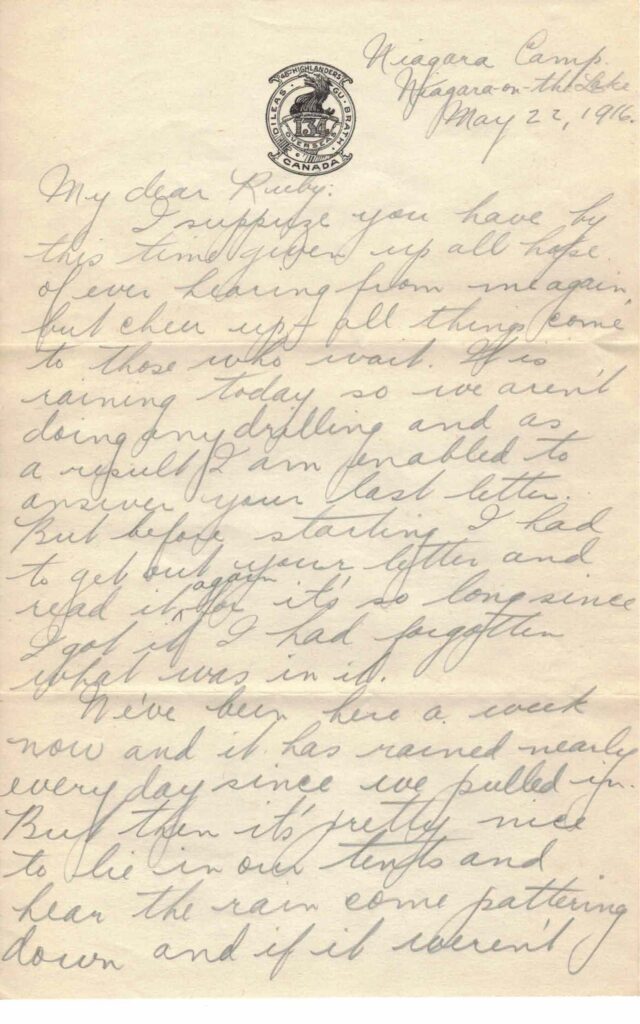 Niagara Camp.
Niagara-on-the Lake
May 22, 1916.
48TH HIGHLANDERS
DILEAS GU BRATH
134
OVERSEAS
CANADA
My dear Ruby:
I suppoze you have by
this time given up all hope
of ever hearing from me again,
but cheer up – all things come
to those who wait. It is
raining today so we aren't
doing any drilling and as
a result I am enabled to
answer your last letter.
But before starting I had
to get out your letter and
read it again for it's so long since
I got it I had forgotten
what was in it.
We've been here a week
now and it has rained nearly
every day since we pulled in.
But then it's pretty nice
to lie in our tents and
hear the rain come pattering
down and if it weren't